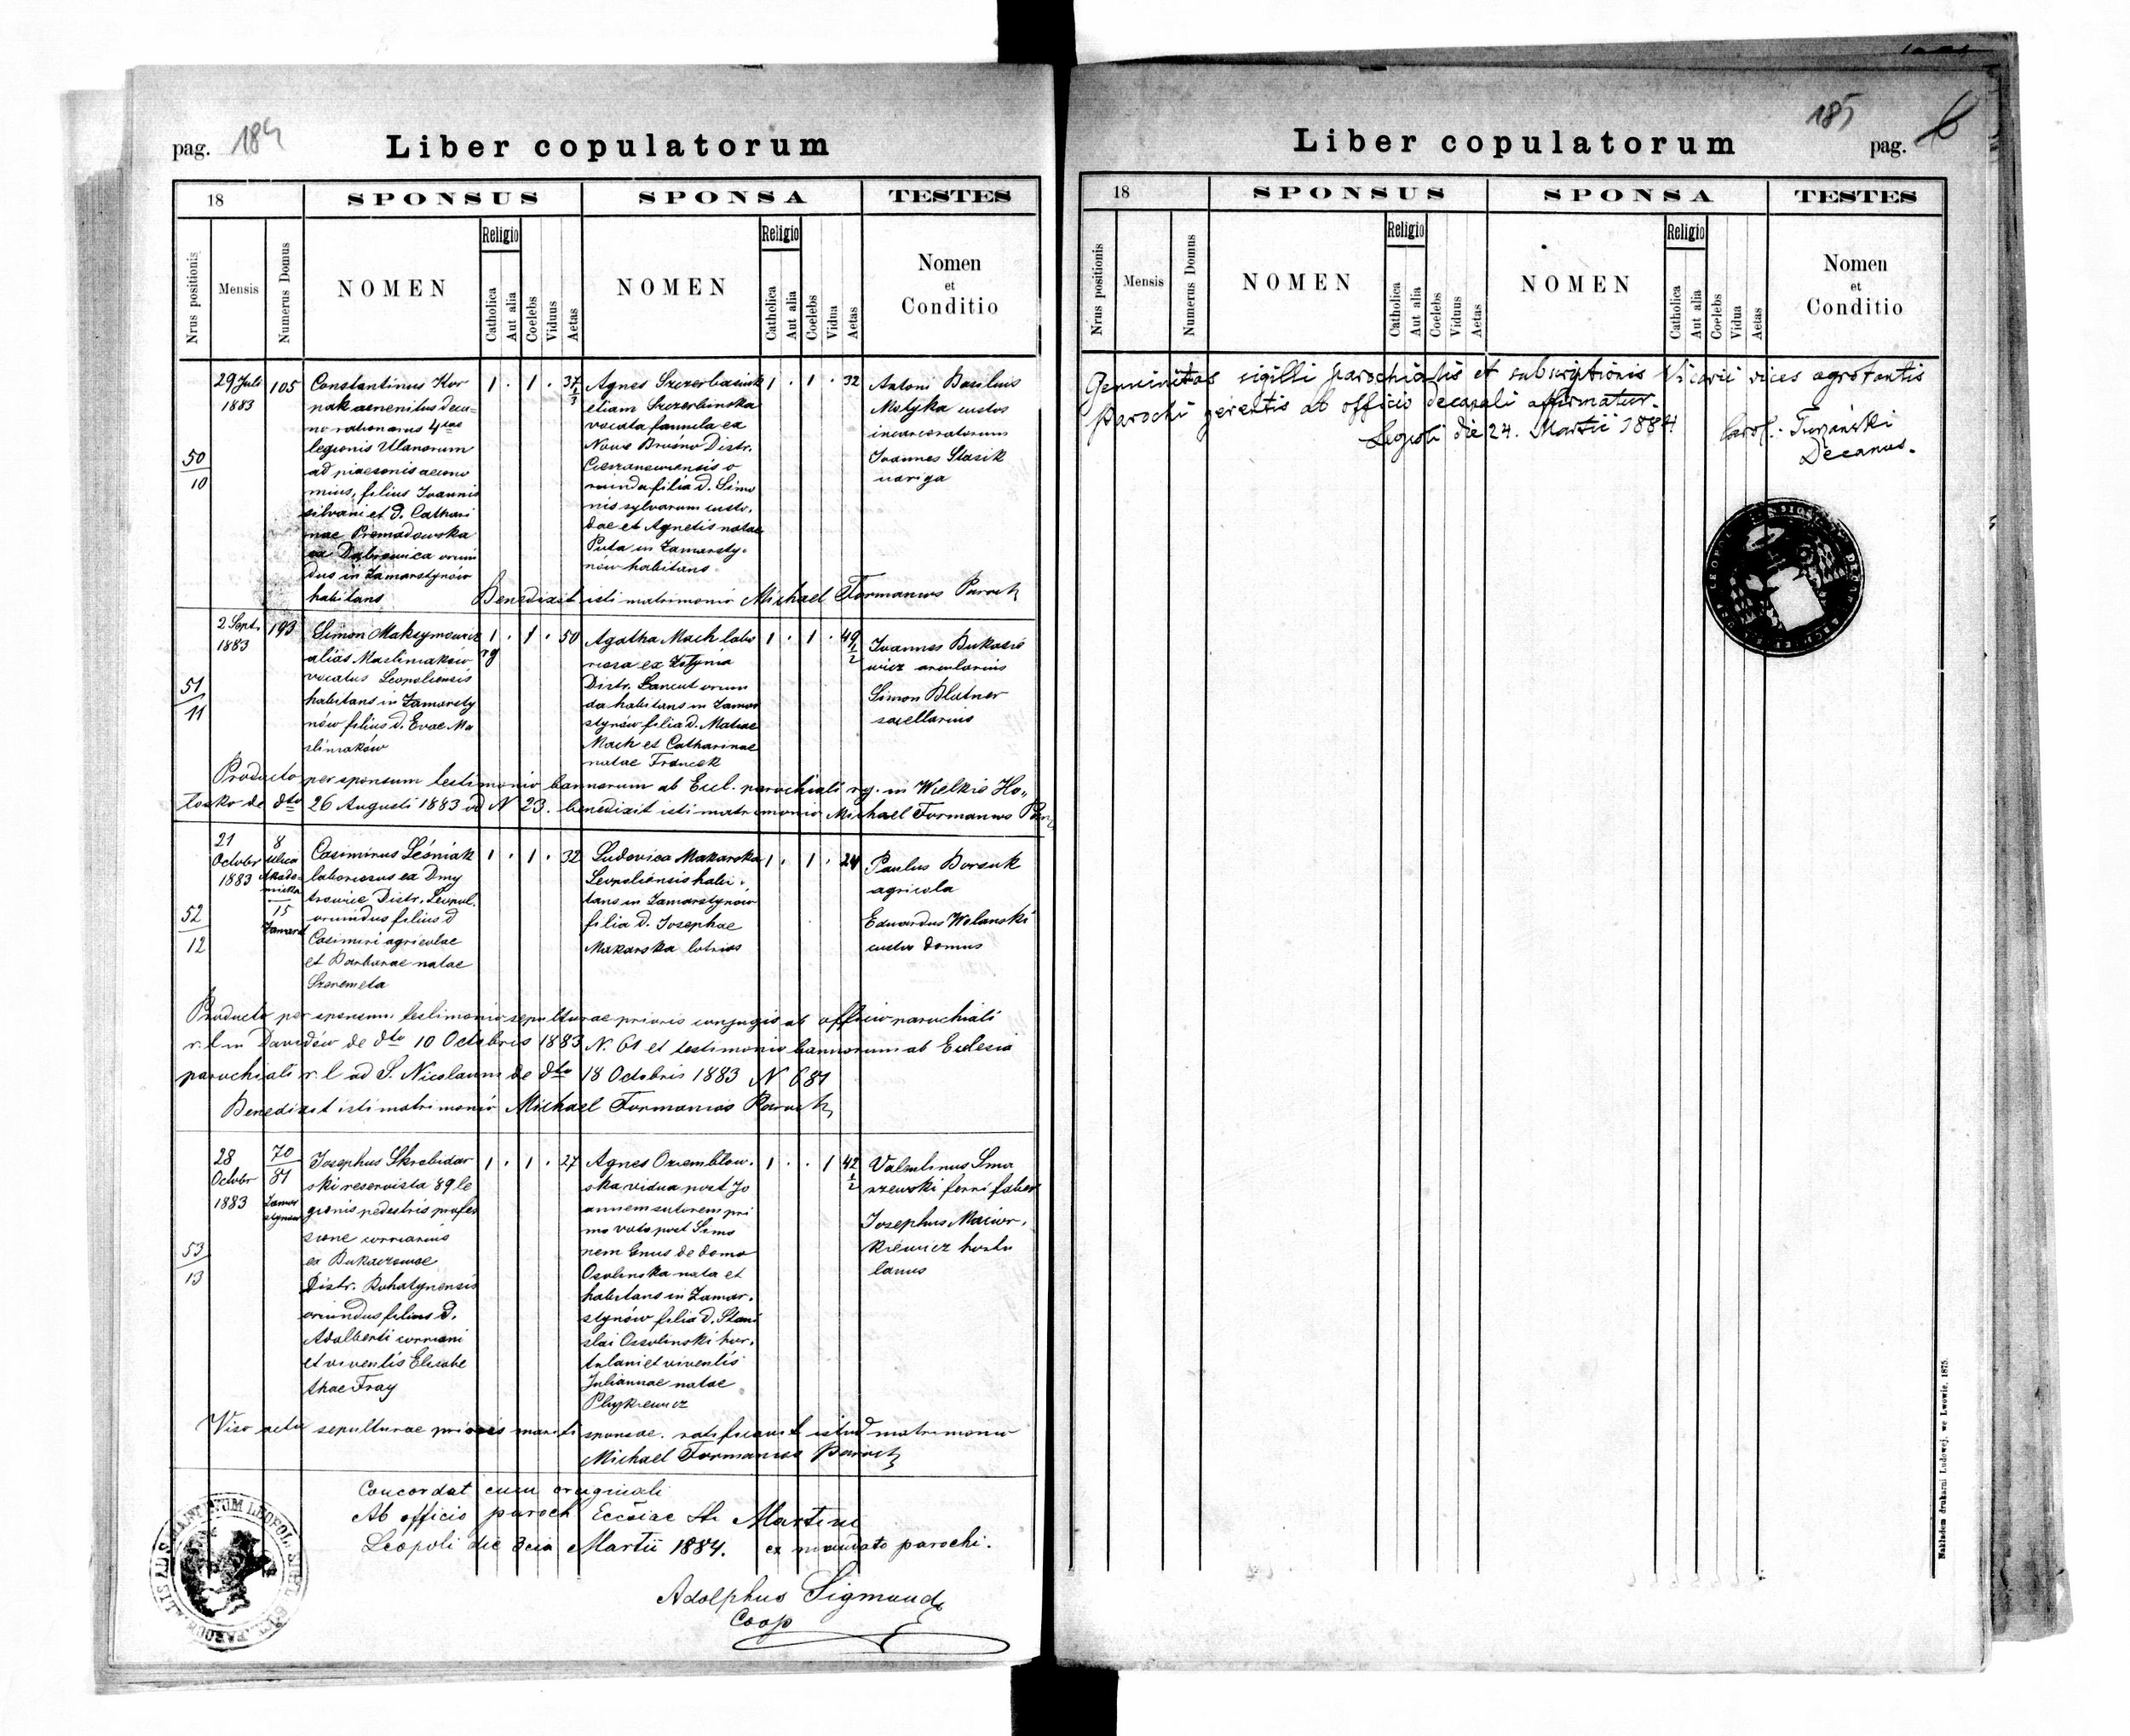 pag. 184
Liber copulatorum
18
SPONSUS
SPONSA
TESTES
Nrus positionis
Mensis
Numerus Domus
NOMEN
Religio
Catholica
Aut alia
Coelebs
Viduus
Aetas
NOMEN
Religio
Catholica
Aut alia
Coelebs
Vidua
Aetas
Nomen
et
Conditio
50
10
29 Juli
1883
105
Constantinus Kor
nak aenenitus decu=
no rationarius 4tae
legionis Ulanorum
filius Joannis
silvani et d. Cathari
nae Promadowska
ex Dąbrowica oriun
dus in Zamarstynów
habitans
1 . 1 . 37 1/2
Agnes Szczerbasiuk
etiam Szczerbinska
vocata famula ex
Nowe Brusno Distr.
Cieszanoviensis o
riunda filia d. Simo
nis sylvarum custo.
dae et Agnetis natae
Puta in Zamarsty.
nów habitans
1 . 1 . 32
Antoni Basilius
Motyka custos
incarceratorum
Joannes Stasik
auriga
Benedixit isti matrimonio Michael Formanios Paroch
51
11
2 Sept.
1883
193
Simon Maksymowicz
alias Masliniaków
vocatus Leopoliensis
habitans in Zamarsty
nów filius d. Evae Ma
sliniaków
1 . 1 . 50
rg
Agatha Mach labo
riosa ex Żołynia
Distr. Łancut oriun
da habitans in Zamar
stynów filia d. Matiae
Mach et Catharinae
natae Francek
1 . 1 . 49 1/2
Joannes Bukasie
wicz arcularius
Simon Blutner
sacellarius
Producto per sponsum testimonio bannorum ab Eccl. parochiali rg. in Wielkie Ho„
losko de dto 26 Augusti 1883 ad N 23. benedixit isti matrimonio Michael Formanios
52
12
21
Octobr
1883
8
ulica
Akade-
micka
15
Zamars
Casimirus Leśniak
laboriosus ex Dmy
trowice Distr. Leopol.
oriundus filius d
Casimiri agricolae
et Barbarae natae
Szeremeta
1 . 1 . 32
Ludovica Makarska
Leopoliensis habi.
tans in Zamarstynów
filia d. Josephae
Makarska lotrias
1 . 1 . 24
Paulus Borsuk
agricola
Eduardus Wolanski
custos domus
Producto per sponsum testimonio sepulturae prioris conjugis ab officio parochiali
r. l in Davidów de dto 10 Octobris 1883 N. 61 et testimonio bannorum ab Ecclesia
parochiali r. l ad S. Nicolaum de dto 18 Octobris 1883 N 681
Benedixit isti matrimonio Michael Formanios Paroch
53
13
28
Octobr
1883
70
81
Zamar
stynów
Josephus Skrobidar
ski reservista 89 le
gionis pedestris profes
sione corriarius
ex Bukaczowce
Distr. Rohatynensis
oriundus filius d.
Adalberti corriarii
et viventis Elisabe
thae Fray
1 . 1 . 27
Agnes Oziemblow.
ska vidua post Jo
annem sutorem pri
mo voto post Simo
nem Gnus de domo
Osolinska nata et
habitans in Zamar.
stynów filia d. Stani
slai Ossolinski hor.
tulani et viventis
Juliannae natae
1 . . 1 42 1/2
Valentinus Smar
szewski ferri faber
Josephus Macior.
kiewicz hortu
lanus
Viso actu sepulturae prioris mariti sponsae. ratificavit istud matrimonio
Michael Formanios Paroch
Concordat cum originali
Ab officio paroch Eccsiae St. Martini
Leopoli die 3cia Martii 1884. ex mandato parochi.
Adolphus Sigmund
Coop
185
Liber copulatorum
pag. 6
18
SPONSUS
SPONSA
TESTES
Nrus positionis
Mensis
Numerus Domus
NOMEN
Religio
Catholica
Aut alia
Coelebs
Viduus
Aetas
NOMEN
Religio
Catholica
Aut alia
Coelebs
Vidua
Aetas
Nomen
et
Conditio
Genuinitas sigilli parochialis et subscriptionis Vicarii vices agrotantis
parochi gerentis ab officio decanali affirmatur.
Leopoli die 24. Martii 1884 Carol. Turzański
Decanus.
Nakładem drukarni Ludowej, we Lwowie. 1875.